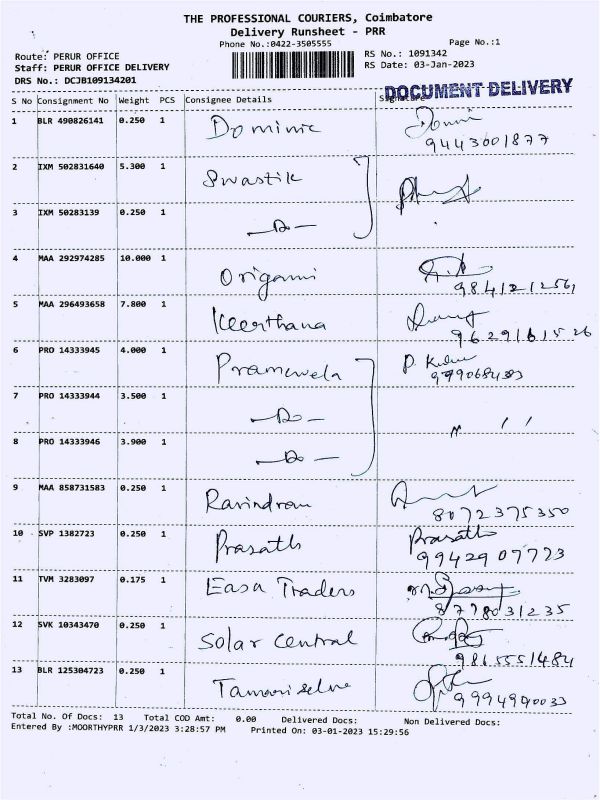 THE PROFESSIONAL COURIERS, Coimbatore
Delivery Runsheet - PRR
Phone No.:0422-3505555
Page No.:1
Route: PERUR OFFICE
RS No.: 1091342
Staff: PERUR OFFICE DELIVERY
RS Date: 03-Jan-2023
DRS No.: DCJB109134201
DOCUMENT DELIVERY
S No Consignment No Weight PCS Consignee Details Signature
1 BLR 490826141 0.250 1 Dominic
9443001877
2 IXM 502831640 5.300 1 Swastik
3 IXM 50283139 0.250 1 — Do —
4 MAA 292974285 10.000 1 Origami
9841212561
5 MAA 296493658 7.800 1 Keerthana
9629161526
6 PRO 14333945 4.000 1
7 PRO 14333944 3.500 1 — Do — " / /
8 PRO 14333946 3.900 1 — Do —
9 MAA 858731583 0.250 1 Ravindran
8072375350
10 SVP 1382723 0.250 1 Prasath Prasath
9942907723
11 TVM 3283097 0.175 1 Easa Traders
8778031235
12 SVK 10343470 0.250 1 Solar Central
9865551484
13 BLR 125304723 0.250 1 Tamariselve
9994990033
Total No. Of Docs: 13 Total COD Amt: 0.00 Delivered Docs: Non Delivered Docs:
Entered By :MOORTHYPRR 1/3/2023 3:28:57 PM Printed On: 03-01-2023 15:29:56